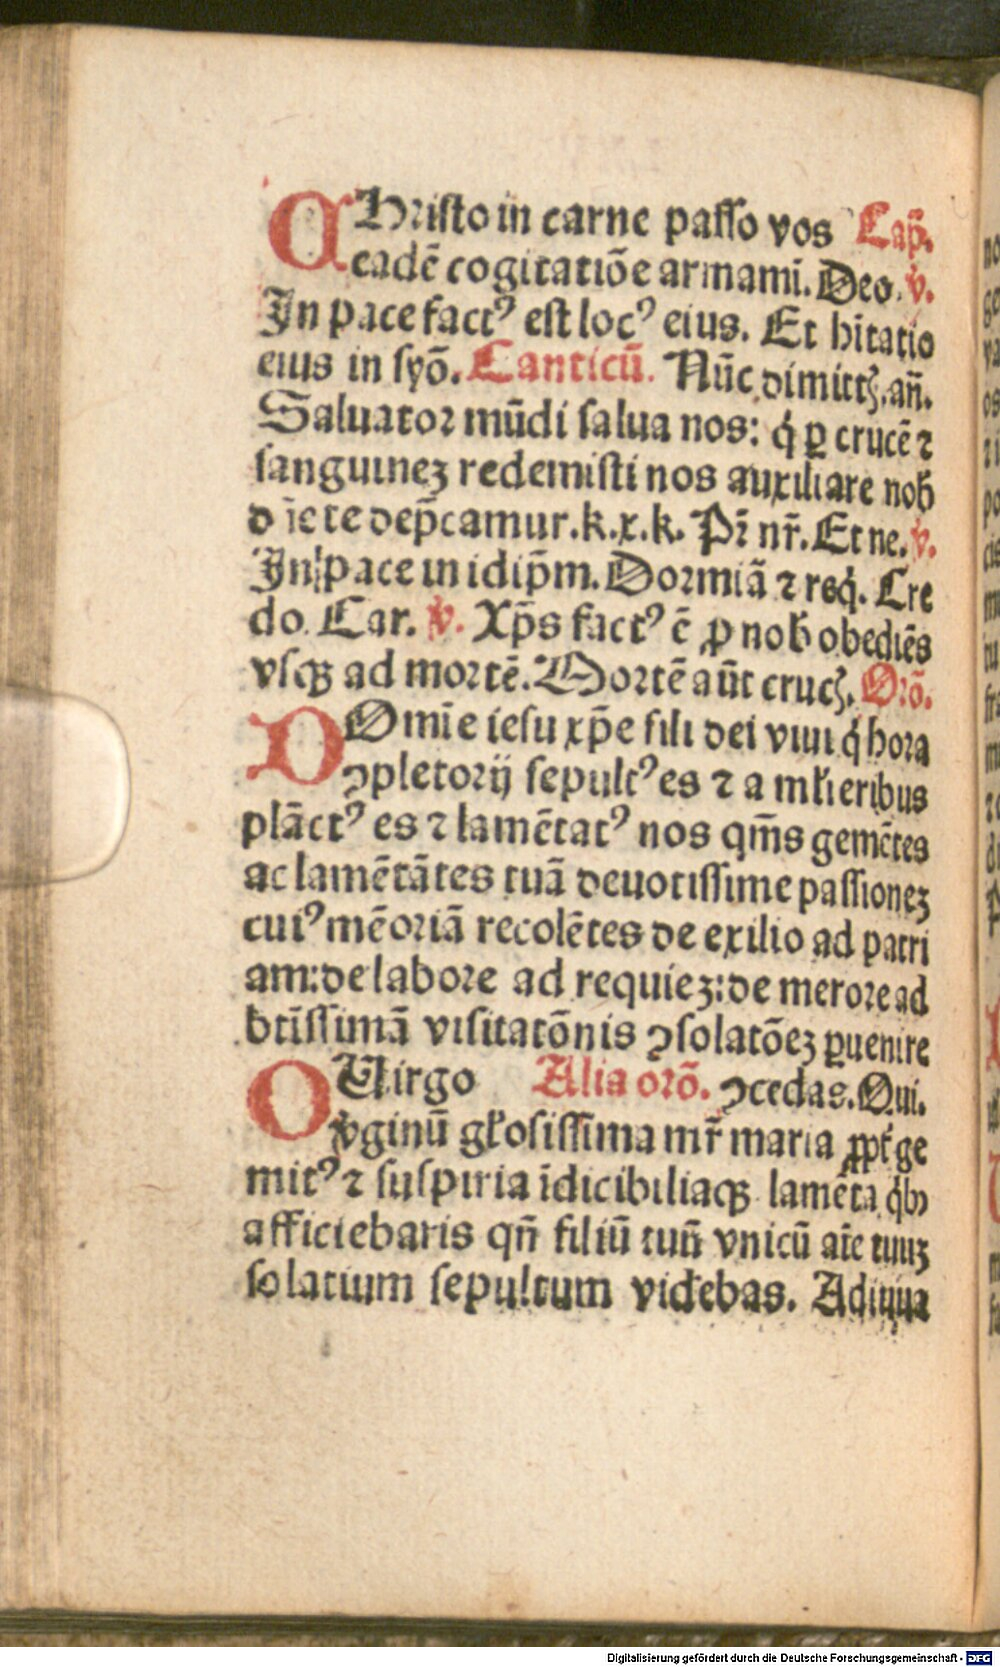 CHristo in carne passo vos Cap̄.
eadē cogitatiōe armamī. Deo. v̄.
In pace factꝰ est locꝰ eius. Et hītatio
eius in syō. Canticū. Nūc dimittꝭ. an̄.
Saluator mūdi salua nos: q̇ ꝑ crucē ⁊
sanguineꝫ redemisti nos auxiliare nob̄
d īe te dep̄camur. k. x. k. Pr̄ nr̄. Et ne. v̄.
In pace in idip̄m. Dormiā ⁊ reqͥ. Cre
do. Car. v̄. Xp̄s factꝰ ē ꝓ nob̄ obediēs
vsqꝫ ad mortē. Mortē aūt crucꝭ. Orō.
DOmīe iesu xp̄e fili dei viui qͥ hora
ꝯpletorij sepultꝰ es ⁊ a mł̄ieribus
plāctꝰ es ⁊ lamētatꝰ nos qm̄s gemētes
ac lamētātes tuā deuotissime passioneꝫ
cuiꝰ mēoriā recolētes de exilio ad patri
am: de labore ad requieꝫ: de merore ad
btīssimā visitatōnis ꝯsolatōeꝫ ꝑuenire
O Uirgo Alia orō. ꝯcedas. Qui.
v̄ginū gł̄osissima mr̄ maria ꝓpt̄ ge
mitꝰ ⁊ suspiria īdicibiliaqꝫ lamēta qͥbꝰ
afficiebaris qn̄ filiū tuū vnicū atē tuuꝫ
solatium sepultum videbas. Adiuua
Digitalisierung gefördert durch die Deutsche Forschungsgemeinschaft - DFG